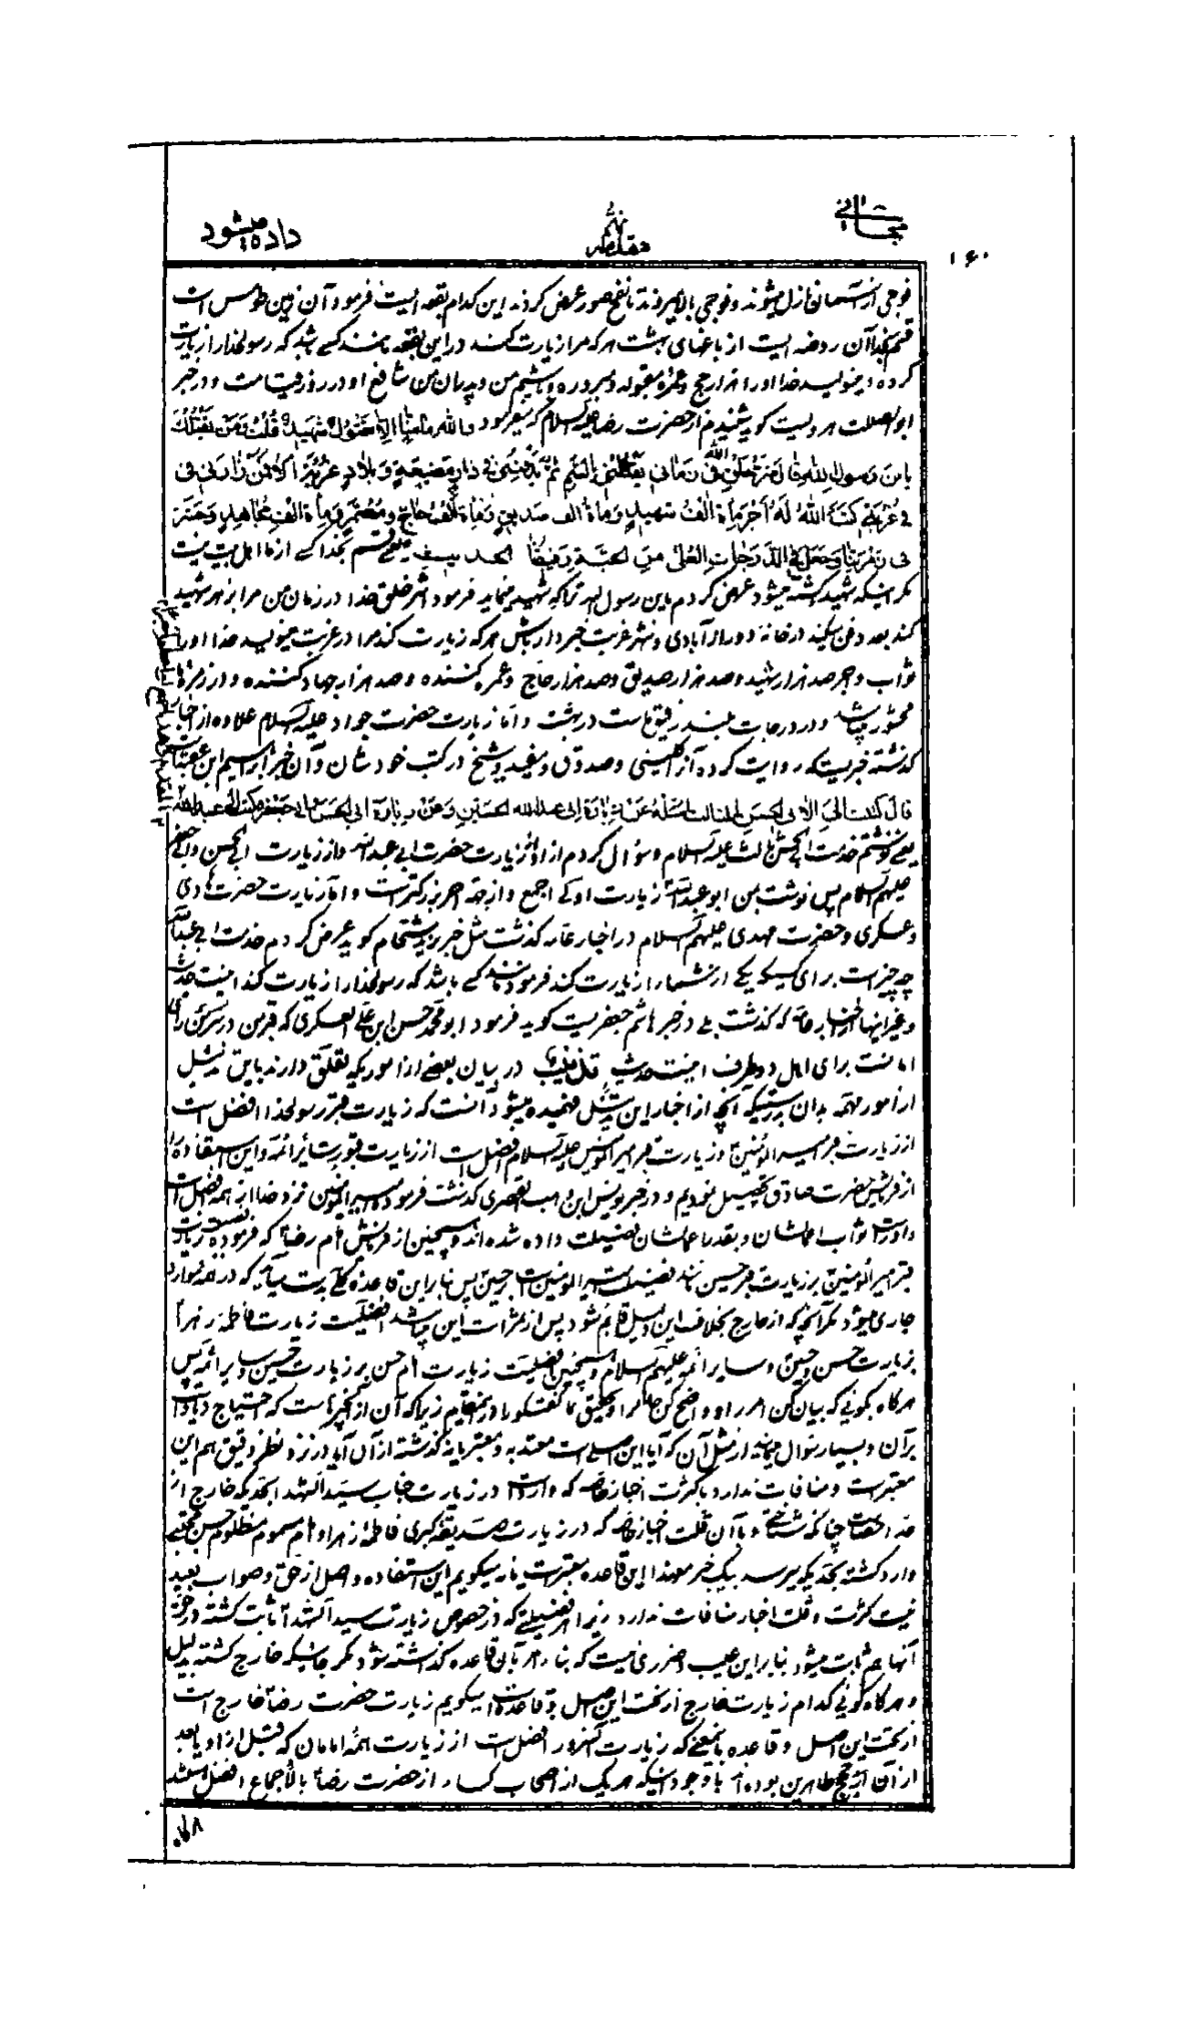 مجانی
داده میشود
۱۶۰
فوجی از آسمان نازل میشوند و فوجی بالا میروند تا نفخ صور عرض کردند این کدام بقعه ایست فرمود آن زمین طوس است
قسم بخدا آن روضه ایست از باغهای بهشت هر که مرا زیارت کند در این بقعه مانند کسی باشد که رسولخدا را زیارت
کرده و مینویسد خدا او را هزار حج و عمره مقبوله و مبروره و باشیم من و پدران من شافع او در روز قیامت و در خبر
ابوالصلت هرویست گوید شنیدم از حضرت رضا علیه السلام که میفرمود والله ما منا الا مقتول شهید قلت و من یقتلک
یابن رسول الله قال شر خلق الله فی زمانی یقتلنی بالسم ثم یدفننی فی دار مضیعة و بلاد غربة الا فمن زارنی فی
غربتی کتب الله له اجر مأة الف شهید و مأة الف صدیق و مأة الف حاج و معتمر و مأة الف مجاهد و حشر
فی زمرتنا و جعل فی الدرجات العلی من الجنة رفیقنا الحدیث یعنی قسم بخدا کسی از ما اهل بیت نیست
مگر اینکه شهید کشته میشود عرض کردم یابن رسول الله ترا که شهید مینماید فرمود شر خلق خدا در زمان من مرا بزهر شهید
کند بعد دفن میکند در خانه دور از آبادی و شهر غربت خبردار باش هر که زیارت کند مرا در غربت مینویسد خدا او را
ثواب و اجر صد هزار شهید و صد هزار صدیق و صد هزار حاج و عمره کننده و صد هزار جهاد کننده و در زمره ما
محشور میباشد و در درجات بلند رفیق ماست در بهشت و اما زیارت حضرت جواد علیه السلام علاوه از اخبار
گذشته خبریست که روایت کرده آنرا کلینی و صدوق و مفید و شیخ در کتب خودشان و آن خبر ابراهیم ابن عقبه است
قال کتبت الی ابی الحسن الثالث اسئله عن زیارة ابی عبدالله الحسین و عن زیارة ابی الحسن و ابی جعفر فکتب الی ابو عبدالله
یعنی نوشتم خدمت ابی الحسن ثالث علیه السلام و سؤال کردم از او از زیارت حضرت ابی عبدالله و از زیارت ابی الحسن و ابی جعفر
علیهم السلام پس نوشت بمن ابو عبدالله زیارت او اولی و اجمع و از جهة اجر بزرگتر است و اما زیارت حضرت هادی
و عسکری و حضرت مهدی علیهم السلام در اخبار عامه گذشت مثل خبر زید شحام گوید عرض کردم خدمت ابی عبدالله
چه چیز است برای کسیکه یکی از شما را زیارت کند فرمود مانند کسی باشد که رسولخدا را زیارت کند اینست حدیث
و غیر اینها از اخبار عامه که گذشت بلی در خبر هاشم جعفریست گوید فرمود ابو محمد حسن ابن علی العسکری که قبر من در سرمن رای
امانست برای اهل دو طرف اینست حدیث تذنیب در بیان بعضی از اموریکه تعلق دارند باین تذییل
از امور مهمه بدان بدرستیکه آنچه از اخبار این تذییل فهمیده میشود آنست که زیارت قبر رسولخدا افضل است
از زیارت قبر امیرالمؤمنین و زیارت قبر امیرالمؤمنین علیه السلام افضل است از زیارت قبور سایر ائمه و این استفاده را
از فرمایش حضرت صادق تحصیل نمودیم و در خبر یونس ابن وهب القصری گذشت فرموده امیرالمؤمنین نزد خدا از همه افضل است
و از برای اوست ثواب اعمالشان و بقدر اعمالشان فضیلت داده شده اند و همچنین از فرمایش امام رضا که فرموده نسبت زیارت
قبر امیرالمؤمنین بر زیارت قبر حسین مانند فضیلت امیرالمؤمنین است بر حسین پس بنابر این قاعده کلی بدست میآید که در همه موارد
جاری میشود مگر آنچه که از خارج بخلاف این دلیل قایم شود پس از ثمرات این میباشد افضلیت زیارت فاطمه زهرا
بزیارت حسن و حسین و سایر ائمه علیهم السلام و همچنین افضلیت زیارت امام حسن بر زیارت حسین و سایر ائمه پس
هرگاه بگوئی که بیان کن امر را و واضح کن حال را و تحقیق نما گفتگو را در اینمقام زیرا که آن از چیزهائیست که احتیاج زیاد است
بر آن و بسیار سؤال مینمایند از مثل آن که آیا این اصلیست معتدبه و معتبر یا نه گذشته از آن آیا در نزد نظر دقیق هم این
معتبر است و منافات ندارد با کثرت اخبار خاصه که وارد است در زیارت جناب سیدالشهدا بحدیکه خارج از
حد احصاست چنانکه شناختی و با آن قلت اخبار خاصه که در زیارت صدیقه کبری فاطمه زهرا و امام مسموم مظلوم حسن مجتبی
وارد گشته بحدیکه میرسد بیک خبر معهذا این قاعده معتبر است یا نه میگویم این استفاده و اصل از حق و صواب بعید
نیست کثرت و قلت اخبار منافات ندارد زیرا هر فضیلتی که در خصوص زیارت سیدالشهداء ثابت گشته در حق
آنها هم ثابت میشود بنابر این عیب و ضرری نیست که بناء امر بآن قاعده گذاشته شود مگر جائیکه خارج گشته بدلیل
و هرگاه گوئی کدام زیارت خارج از تحت این اصل و قاعده است میگویم زیارت حضرت رضا خارج است
از تحت این اصل و قاعده باینمعنی که زیارت آنسرور افضل است از زیارت همه امامان که قبل از او یا بعد
از آن از حجج طاهرین بوده اند با وجود اینکه هر یک از اصحاب کساء از حضرت رضا بالاجماع افضل میباشند